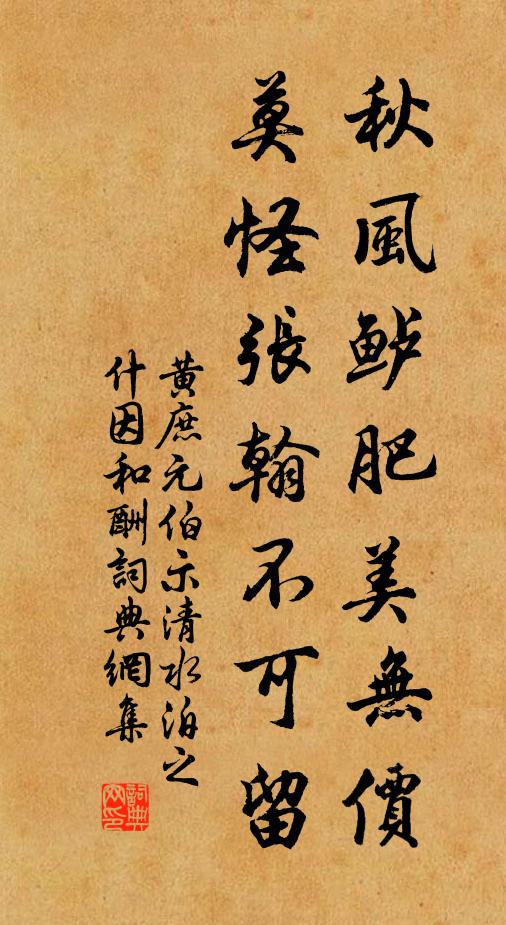 秋風鲈肥美無價
莫怪張翰不可留
黃庶元伯示清水泊之
什因和酬詞典網集
詞典
网印